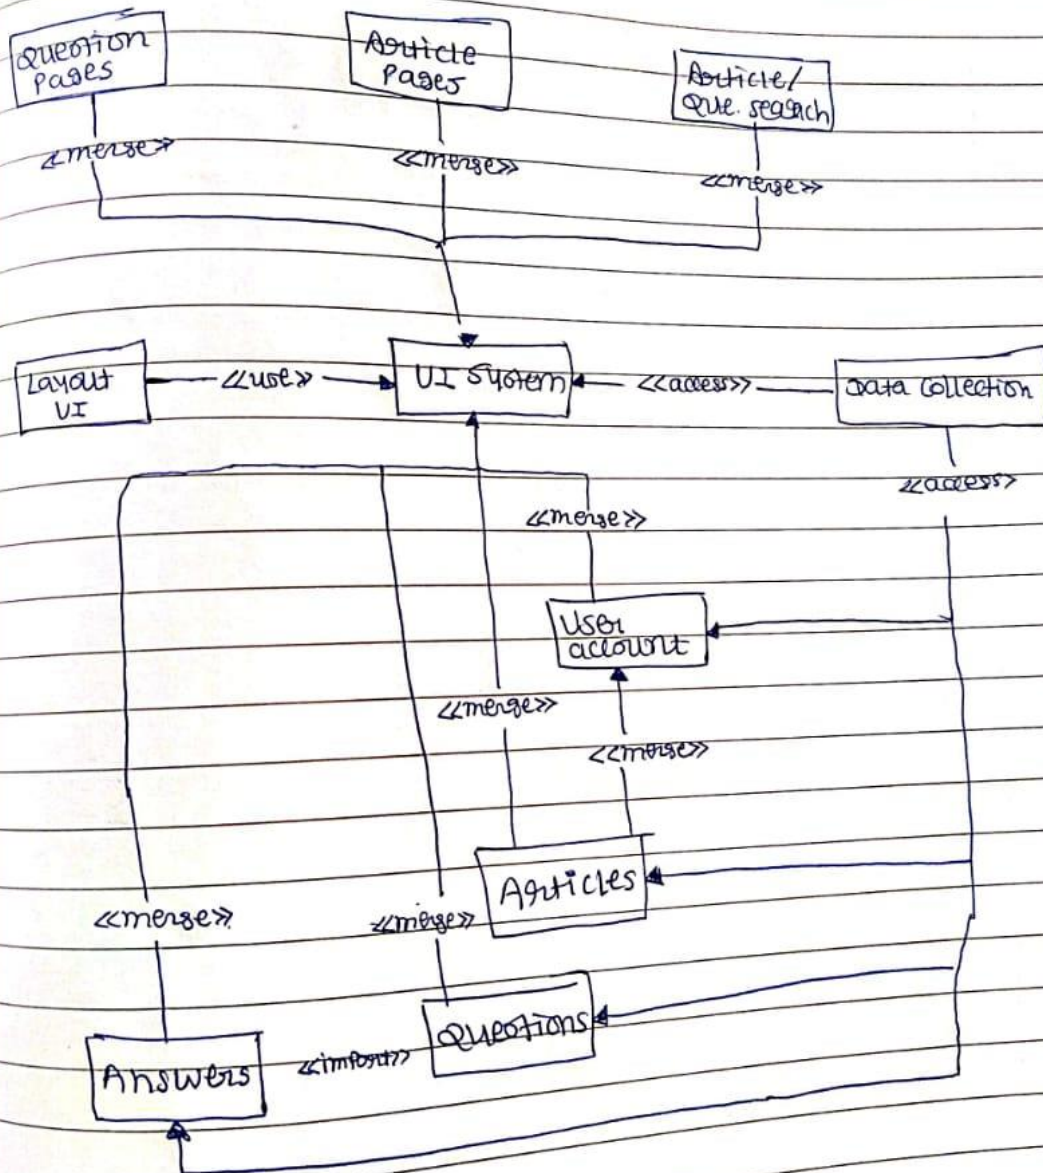 Question
Pages
Article
Pages
Article/
Que. search
<<merge>>
<<merge>>
<<merge>>
Layout
UI
<<use>>
UI System
<<access>>
Data Collection
<<access>>
<<merge>>
User
account
<<merge>>
<<merge>>
Articles
<<merge>>
<<merge>>
Questions
<<import>>
Answers